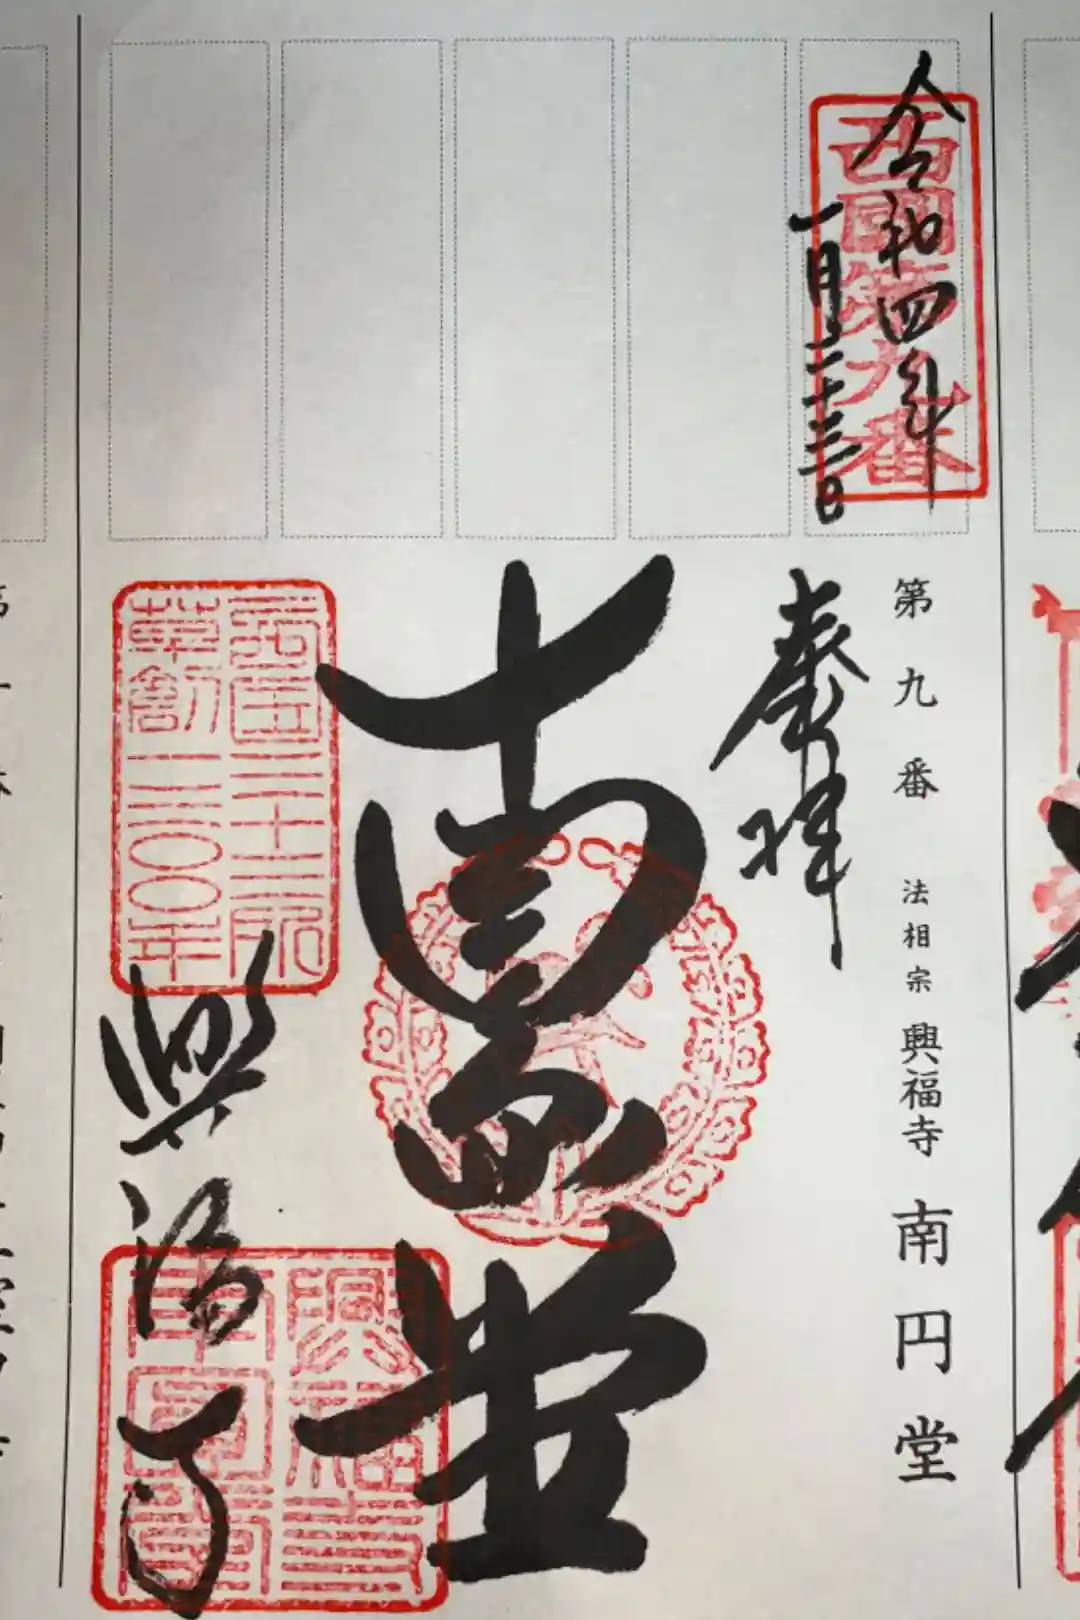 令和四年
一月二十三日
西國第九番
第九番 法相宗 興福寺 南円堂
奉拝
南圓堂
西国三十三所
草創一三〇〇年
興福寺
興福寺
南圓堂